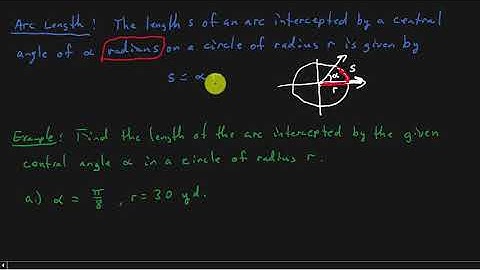 Arc Length: The length s of an arc intercepted by a central
angle of α radians on a circle of radius r is given by
s = α
α
s
r
Example: Find the length of the arc intercepted by the given
central angle α in a circle of radius r.
a.) α = π/8, r = 30 yd.